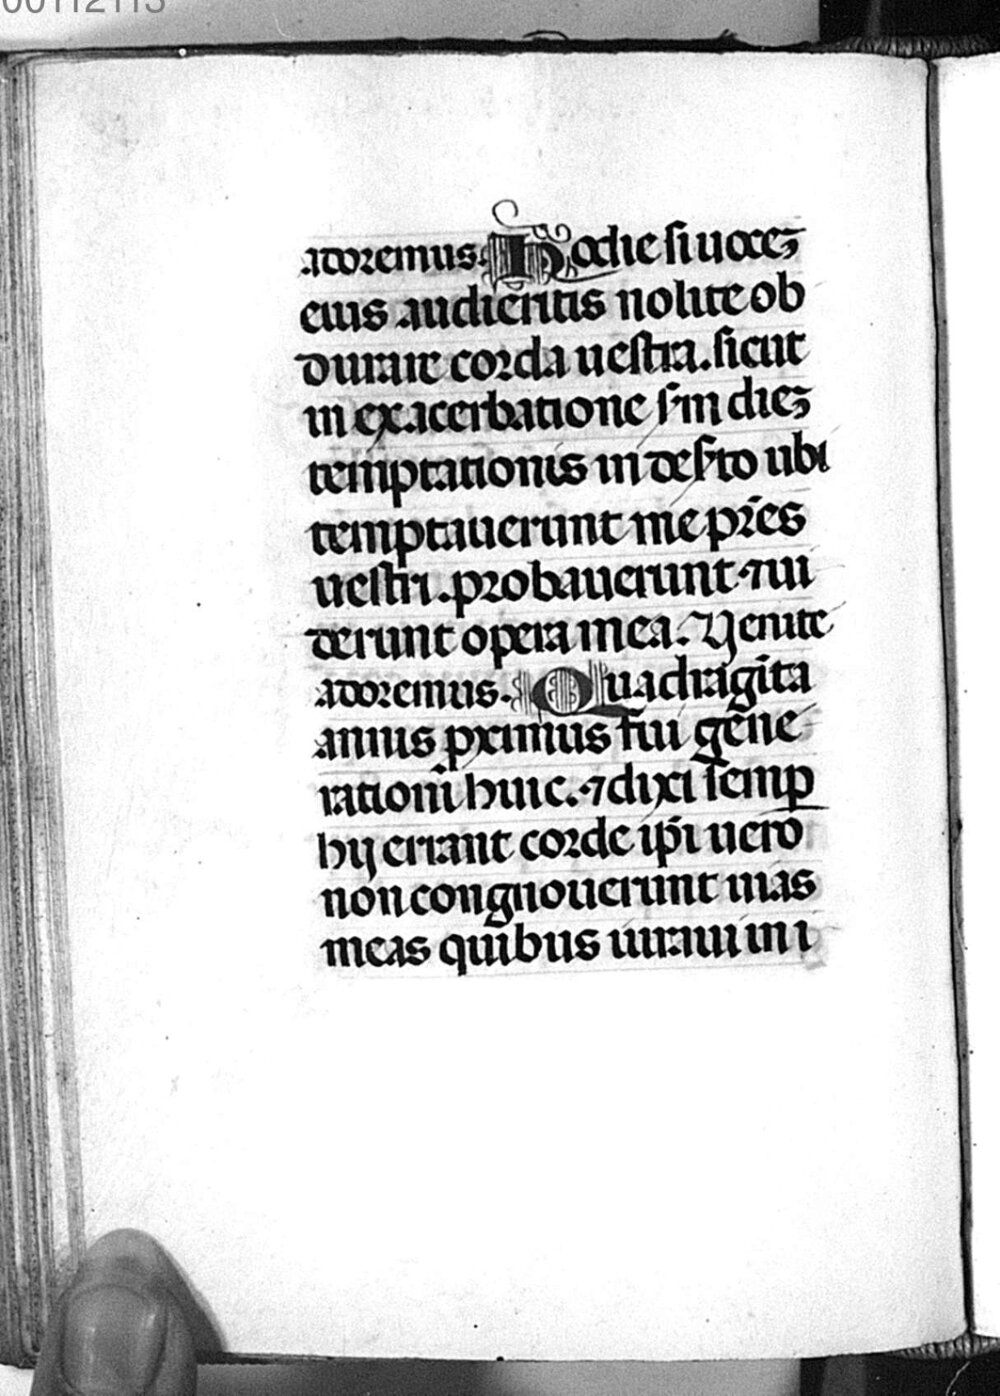 00112113
adoremus. Hodie si uoceʒ
eius audieritis nolite ob
durare corda uestra. sicut
in exacerbatione s'm dieʒ
temptationis in des'to ubi
temptauerunt me pr̄es
uestri. probauerunt ⁊ ui
derunt opera mea. Venite
adoremus. Quadragīta
annis pximus fui gēne
rationi huic. ⁊ dixi semꝑ
hij errant corde ip̄i uero
non congnouerunt uias
meas quibus iuraui in i